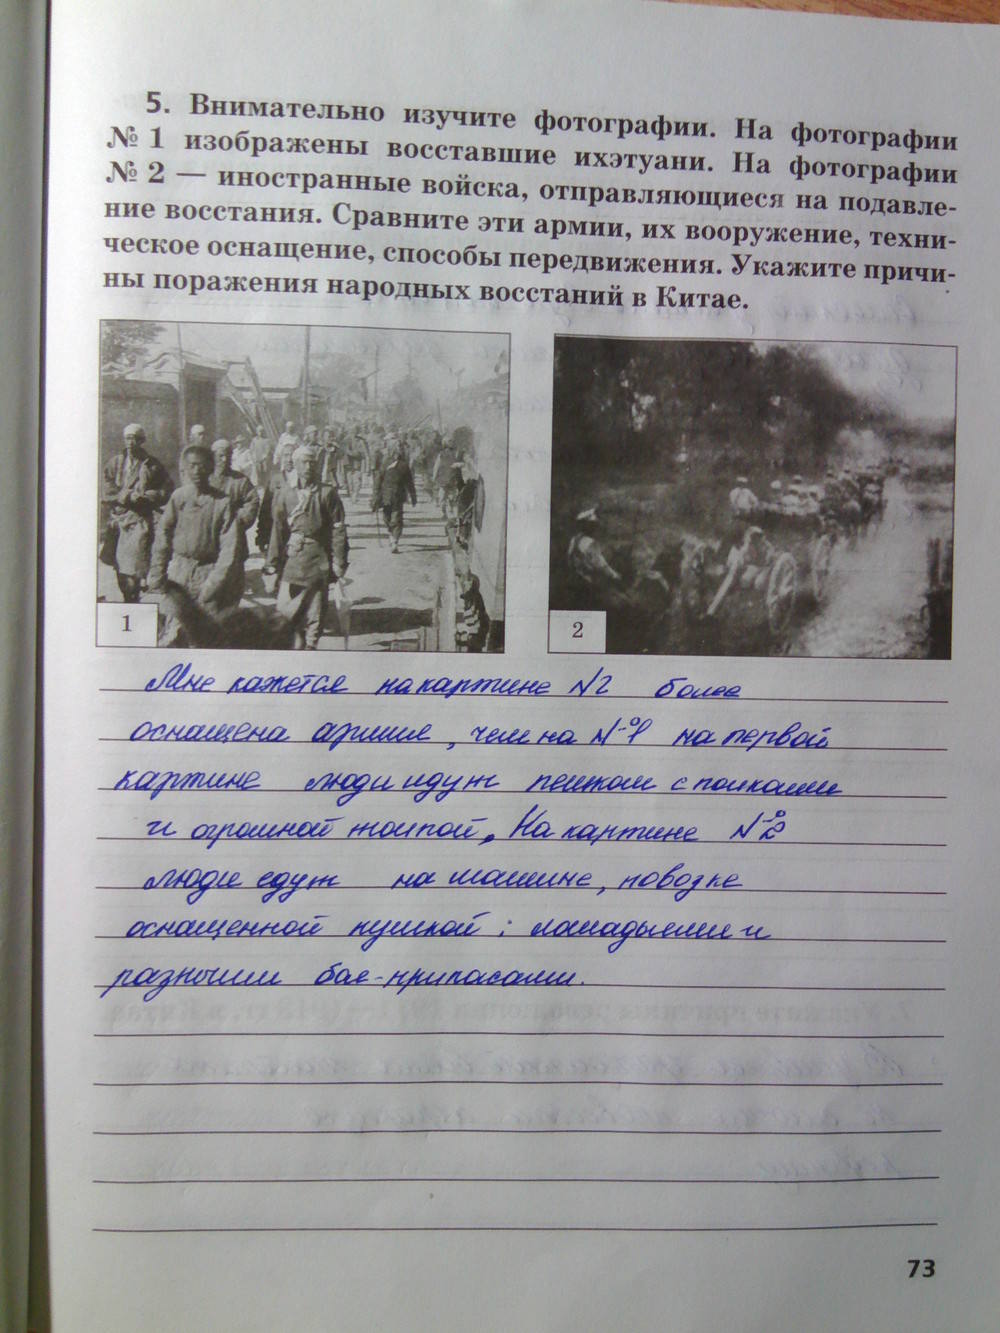 5. Внимательно изучите фотографии. На фотографии
№ 1 изображены восставшие ихэтуани. На фотографии
№ 2 — иностранные войска, отправляющиеся на подавле-
ние восстания. Сравните эти армии, их вооружение, техни-
ческое оснащение, способы передвижения. Укажите причи-
ны поражения народных восстаний в Китае.
1
2
Мне кажется на картине №2 более
оснащена армия, чем на №1 на первой
картине люди идут пешком с палками
и огромной толпой. На картине №2
люди едут на машине, повозке
оснащенной пушкой; лошадьеми и
разными бое-припасами.
73